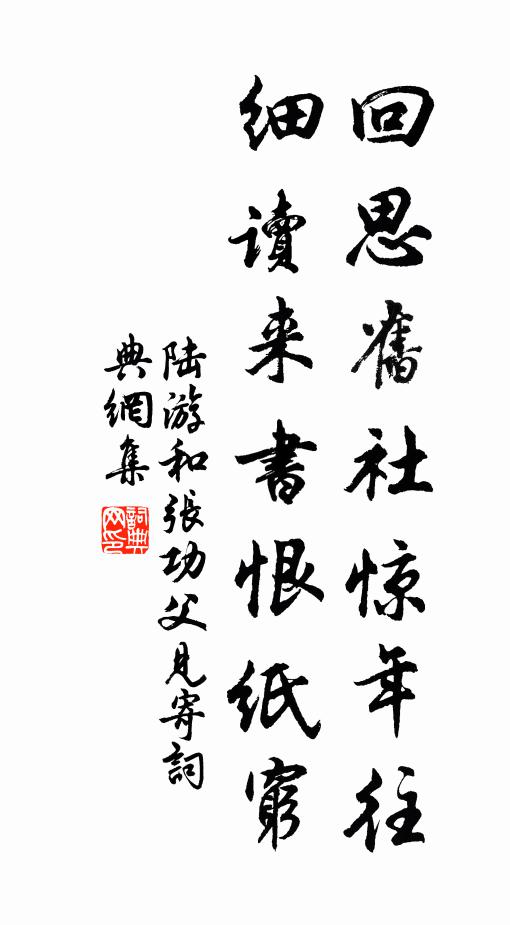 回思舊社惊年往
细读来書恨纸窮
陆游和張功父見寄詞
典網集
詞典网印